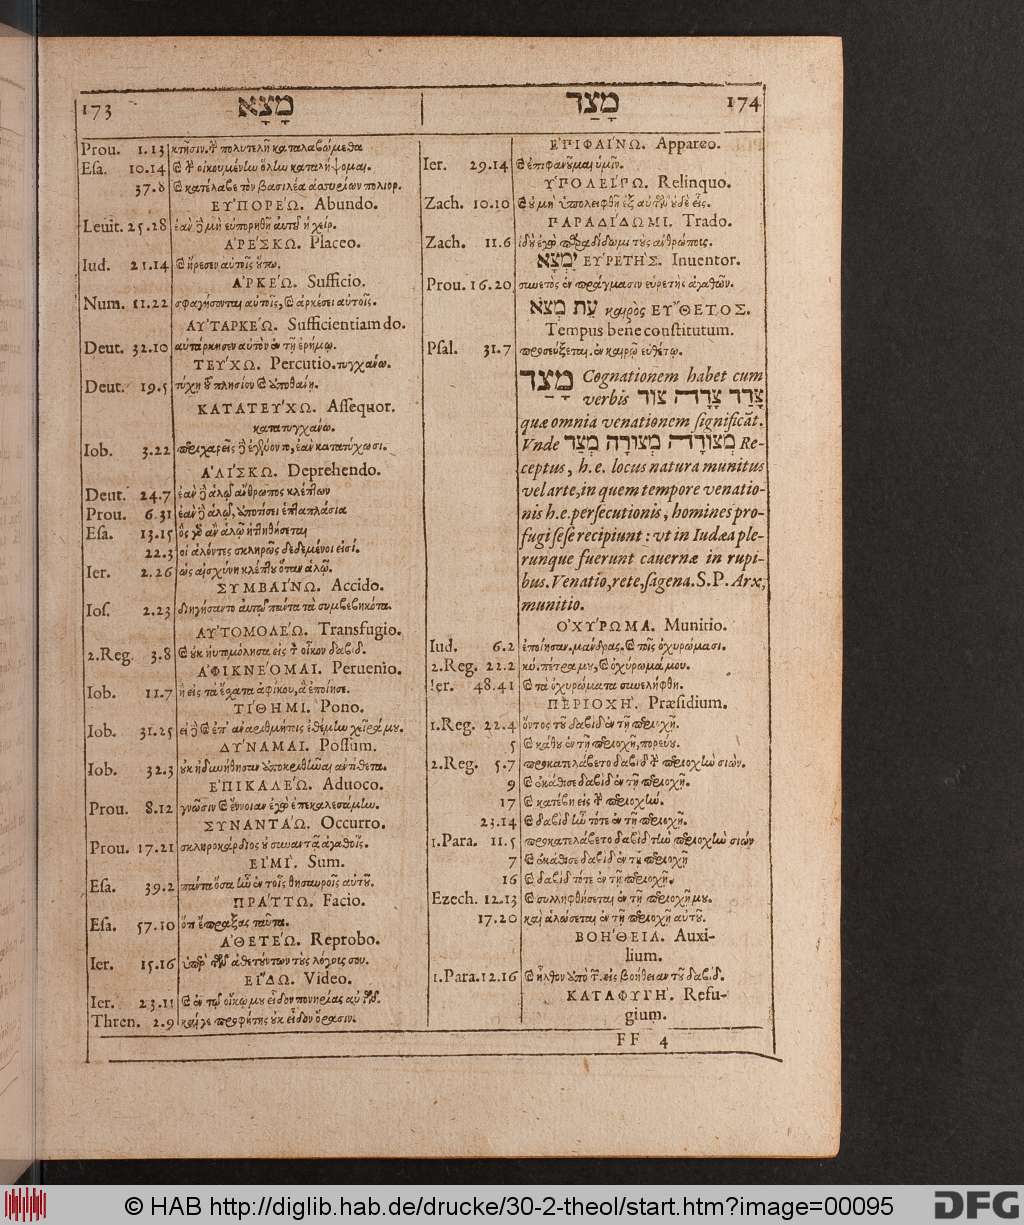 173 מָצָא
מָצַד 174
Prou. 1.13 κτῆσιν. τ πολυτελῆ καταλαβώμεθα
Esa. 10.14 καὶ τ οἰκουμένην ὅλην καταλήψομαι.
37.8 καὶ κατέλαβε τὸν βασιλέα ἀσσυρίων πολιορ.
ΕΥΠΟΡΕΏ. Abundo.
Leuit. 25.28 ἐὰν δὲ μὴ εὐπορηθῇ αὐτοῦ ἡ χείρ.
ἈΡΕΣΚΩ. Placeo.
Iud. 21.14 καὶ ἤρεσεν αὐτοῖς οὕτω.
ἈΡΚΕΏ. Sufficio.
Num. 11.22 σφαγήσονται αὐτοῖς, καὶ ἀρκέσει αὐτοῖς.
ΑΥΤΑΡΚΕΏ. Sufficientiam do.
Deut. 32.10 αὐτάρκησεν αὐτὸν ἐν τῇ ἐρήμῳ.
ΤΕΥΧΩ. Percutio. τυγχάνω.
Deut. 19.5 τύχῃ τοῦ πλησίον καὶ ἀποθάνῃ.
ΚΑΤΑΤΕΥΧΩ. Assequor.
κατατυγχάνω.
Iob. 3.22 περιχαρεῖς δὲ ἐγένοντο, ἐὰν κατατύχωσι.
ἉΛΙΣΚΩ. Deprehendo.
Deut. 24.7 ἐὰν δὲ ἁλῷ ἄνθρωπος κλέπτων
Prou. 6.31 ἐὰν δὲ ἁλῷ, ἀποτίσει ἑπταπλάσια
Esa. 13.15 ὃς γὰρ ἂν ἁλῷ ἡττηθήσεται
22.3 οἱ ἁλόντες σκληρῶς δεδεμένοι εἰσί.
Ier. 2.26 ὡς αἰσχύνη κλέπτου ὅταν ἁλῷ.
ΣΥΜΒΑΊΝΩ. Accido.
Ios. 2.23 διηγήσαντο αὐτῷ πάντα τὰ συμβεβηκότα.
ΑΥΤΟΜΟΛΕΏ. Transfugio.
2.Reg. 3.8 καὶ οὐκ ηὐτομόλησα εἰς τ οἶκον δαβίδ.
ἈΦΙΚΝΕΌΜΑΙ. Peruenio.
Iob. 11.7 ἢ εἰς τὰ ἔσχατα ἀφίκου, ἃ ἐποίησε.
ΤΊΘΗΜΙ. Pono.
Iob. 31.25 εἰ δὲ καὶ ἐπ' ἀναριθμήτοις ἐθέμην χεῖρά μου.
ΔΎΝΑΜΑΙ. Possum.
Iob. 32.3 οὐκ ἠδυνήθησαν ἀποκριθῆναι ἀντίθετα.
ἘΠΙΚΑΛΕΏ. Aduoco.
Prou. 8.12 γνῶσιν καὶ ἔννοιαν ἐγὼ ἐπεκαλεσάμην.
ΣΥΝΑΝΤΆΩ. Occurro.
Prou. 17.21 σκληροκάρδιος οὐ συναντᾷ ἀγαθοῖς.
ΕΙΜΊ. Sum.
Esa. 39.2 πάντα ὅσα ἦν ἐν τοῖς θησαυροῖς αὐτοῦ.
ΠΡΆΤΤΩ. Facio.
Esa. 57.10 ὅτι ἔπραξας ταῦτα.
ἈΘΕΤΕΏ. Reprobo.
Ier. 15.16 ὑπὸ τῶν ἀθετούντων τοὺς λόγους σου.
ΕἼΔΩ. Video.
Ier. 23.11 καὶ ἐν τῷ οἴκῳ μου εἶδον πονηρίας αὐτῶν.
Thren. 2.9 καί γε προφήτης οὐκ εἶδον ὅρασιν.
ἘΠΙΦΑΊΝΩ. Appareo.
Ier. 29.14 καὶ ἐπιφανοῦμαι ὑμῖν.
ὙΠΟΛΕΊΠΩ. Relinquo.
Zach. 10.10 καὶ οὐ μὴ ὑπολειφθῇ ἐξ αὐτῶν οὐδὲ εἷς.
ΠΑΡΑΔΊΔΩΜΙ. Trado.
Zach. 11.6 ἰδοὺ ἐγὼ παραδίδωμι τοὺς ἀνθρώπους.
יִמְצָא ΕΥΡΕΤΗΣ. Inuentor.
Prou. 16.20 συνετὸς ἐν πράγμασιν εὑρετὴς ἀγαθῶν.
עֵת מְצֹא καιρὸς ΕΥΘΕΤΟΣ.
Tempus bene constitutum.
Psal. 31.7 προσεύξεται. ἐν καιρῷ εὐθέτῳ.
מָצַד Cognationem habet cum
verbis צָדַד צָדָה צוּד
quæ omnia venationem significāt.
Vnde מְצוּדָה מְצוּרָה מְצַד Re-
ceptus, h. e. locus natura munitus
vel arte, in quem tempore venatio-
nis h. e. persecutionis, homines pro-
fugi sese recipiunt: vt in Iudæa ple-
runque fuerunt cauernæ in rupi-
bus. Venatio, rete, sagena. S. P. Arx,
munitio.
ὈΧΥΡΩΜΑ. Munitio.
Iud. 6.2 ἐποίησαν. μάνδρας. καὶ τοῖς ὀχυρώμασι.
2.Reg. 22.2 κύ. πέτρα μου, καὶ ὀχύρωμά μου.
Ier. 48.41 καὶ τὰ ὀχυρώματα συνελήφθη.
ΠΕΡΙΟΧΗ. Præsidium.
1.Reg. 22.4 ὄντος τοῦ δαβὶδ ἐν τῇ περιοχῇ.
5 καὶ κάθου ἐν τῇ περιοχῇ, πορεύου.
2.Reg. 5.7 προκατελάβετο δαβὶδ τ περιοχὴν σιών.
9 καὶ ἐκάθισε δαβὶδ ἐν τῇ περιοχῇ.
17 καὶ κατέβη εἰς τ περιοχήν.
23.14 καὶ δαβὶδ ἦν τότε ἐν τῇ περιοχῇ.
1.Para. 11.5 προκατελάβετο δαβὶδ τὴν περιοχὴν σιών
7 καὶ ἐκάθισε δαβὶδ ἐν τῇ περιοχῇ
16 καὶ δαβὶδ τότε ἐν τῇ περιοχῇ.
Ezech. 12.13 καὶ συλληφθήσεται ἐν τῇ περιοχῇ μου.
17.20 καὶ ἁλώσεται ἐν τῇ περιοχῇ αὐτοῦ.
ΒΟΗΘΕΙΑ. Auxi-
lium.
1.Para. 12.16 καὶ ἦλθον ἀπὸ τ. εἰς βοήθειαν τοῦ δαβίδ.
ΚΑΤΑΦΥΓΗ. Refu-
gium.
FF 4
© HAB http://diglib.hab.de/drucke/30-2-theol/start.htm?image=00095
DFG